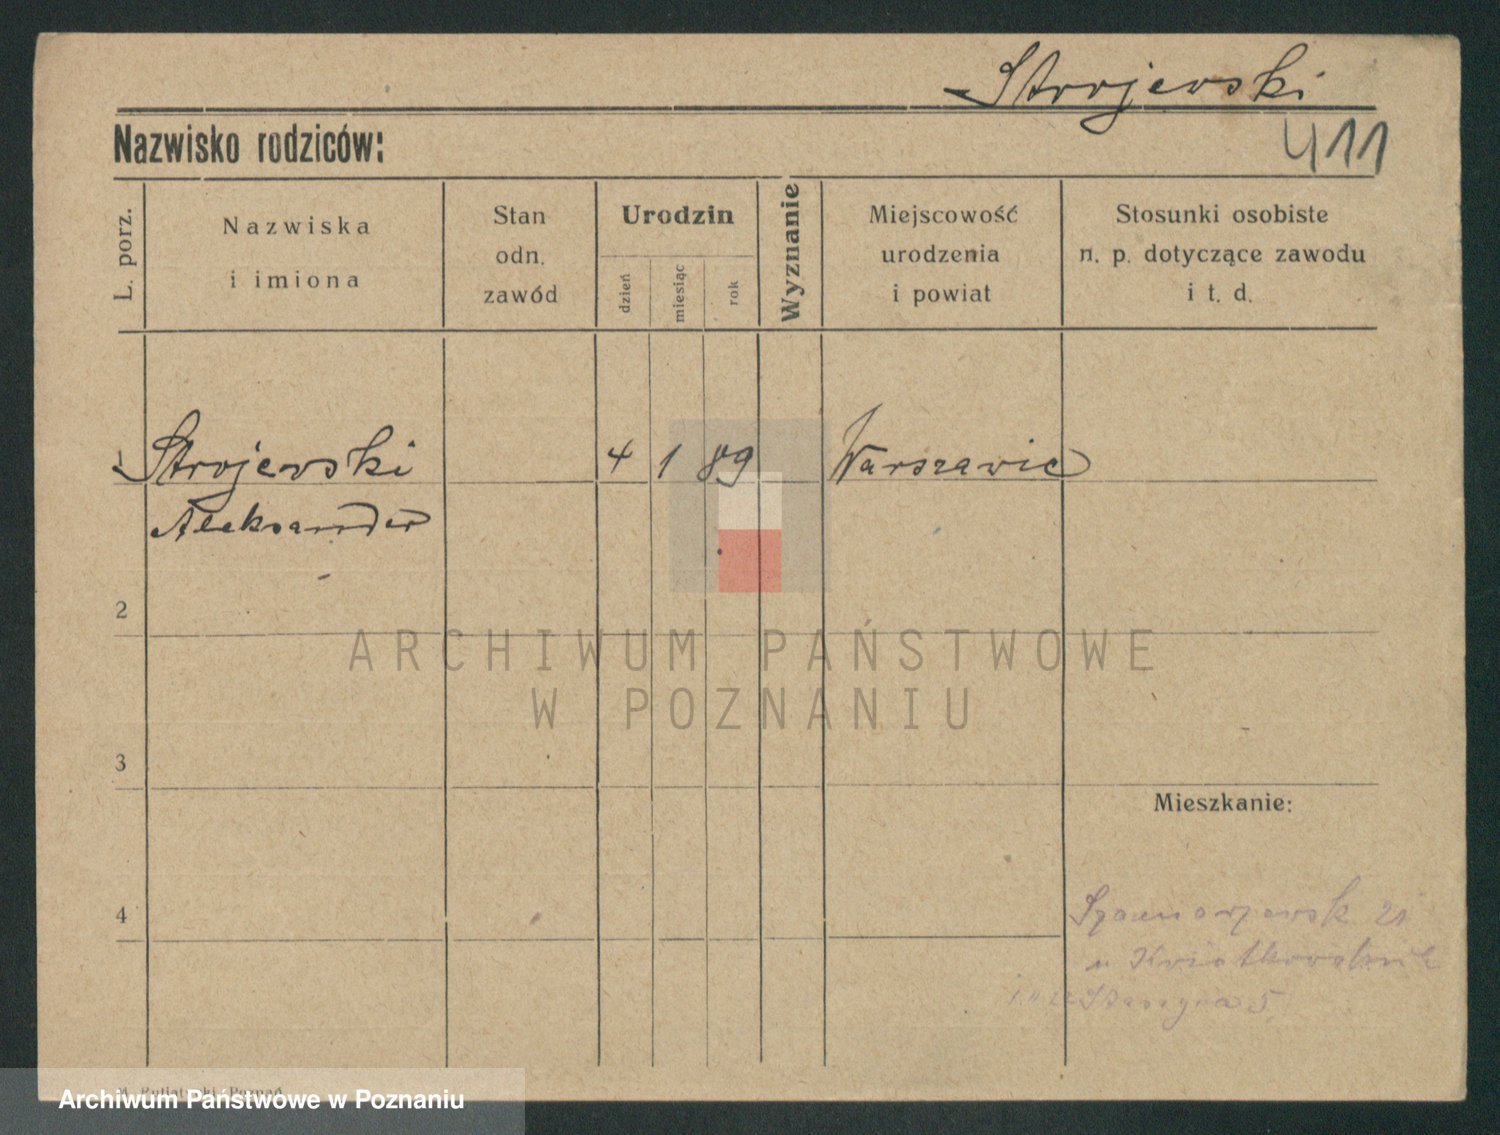 Strojewski
Nazwisko rodziców:
411
L. porz.
Nazwiska
i imiona
Stan
odn.
zawód
Urodzin
dzień
miesiąc
rok
Wyznanie
Miejscowość
urodzenia
i powiat
Stosunki osobiste
n. p. dotyczące zawodu
i t. d.
1 Strojewski 4 1 89 Warszawie
Aleksander
2
ARCHIWUM PAŃSTWOWE
W POZNANIU
3
Mieszkanie:
4
Archiwum Państwowe w Poznaniu